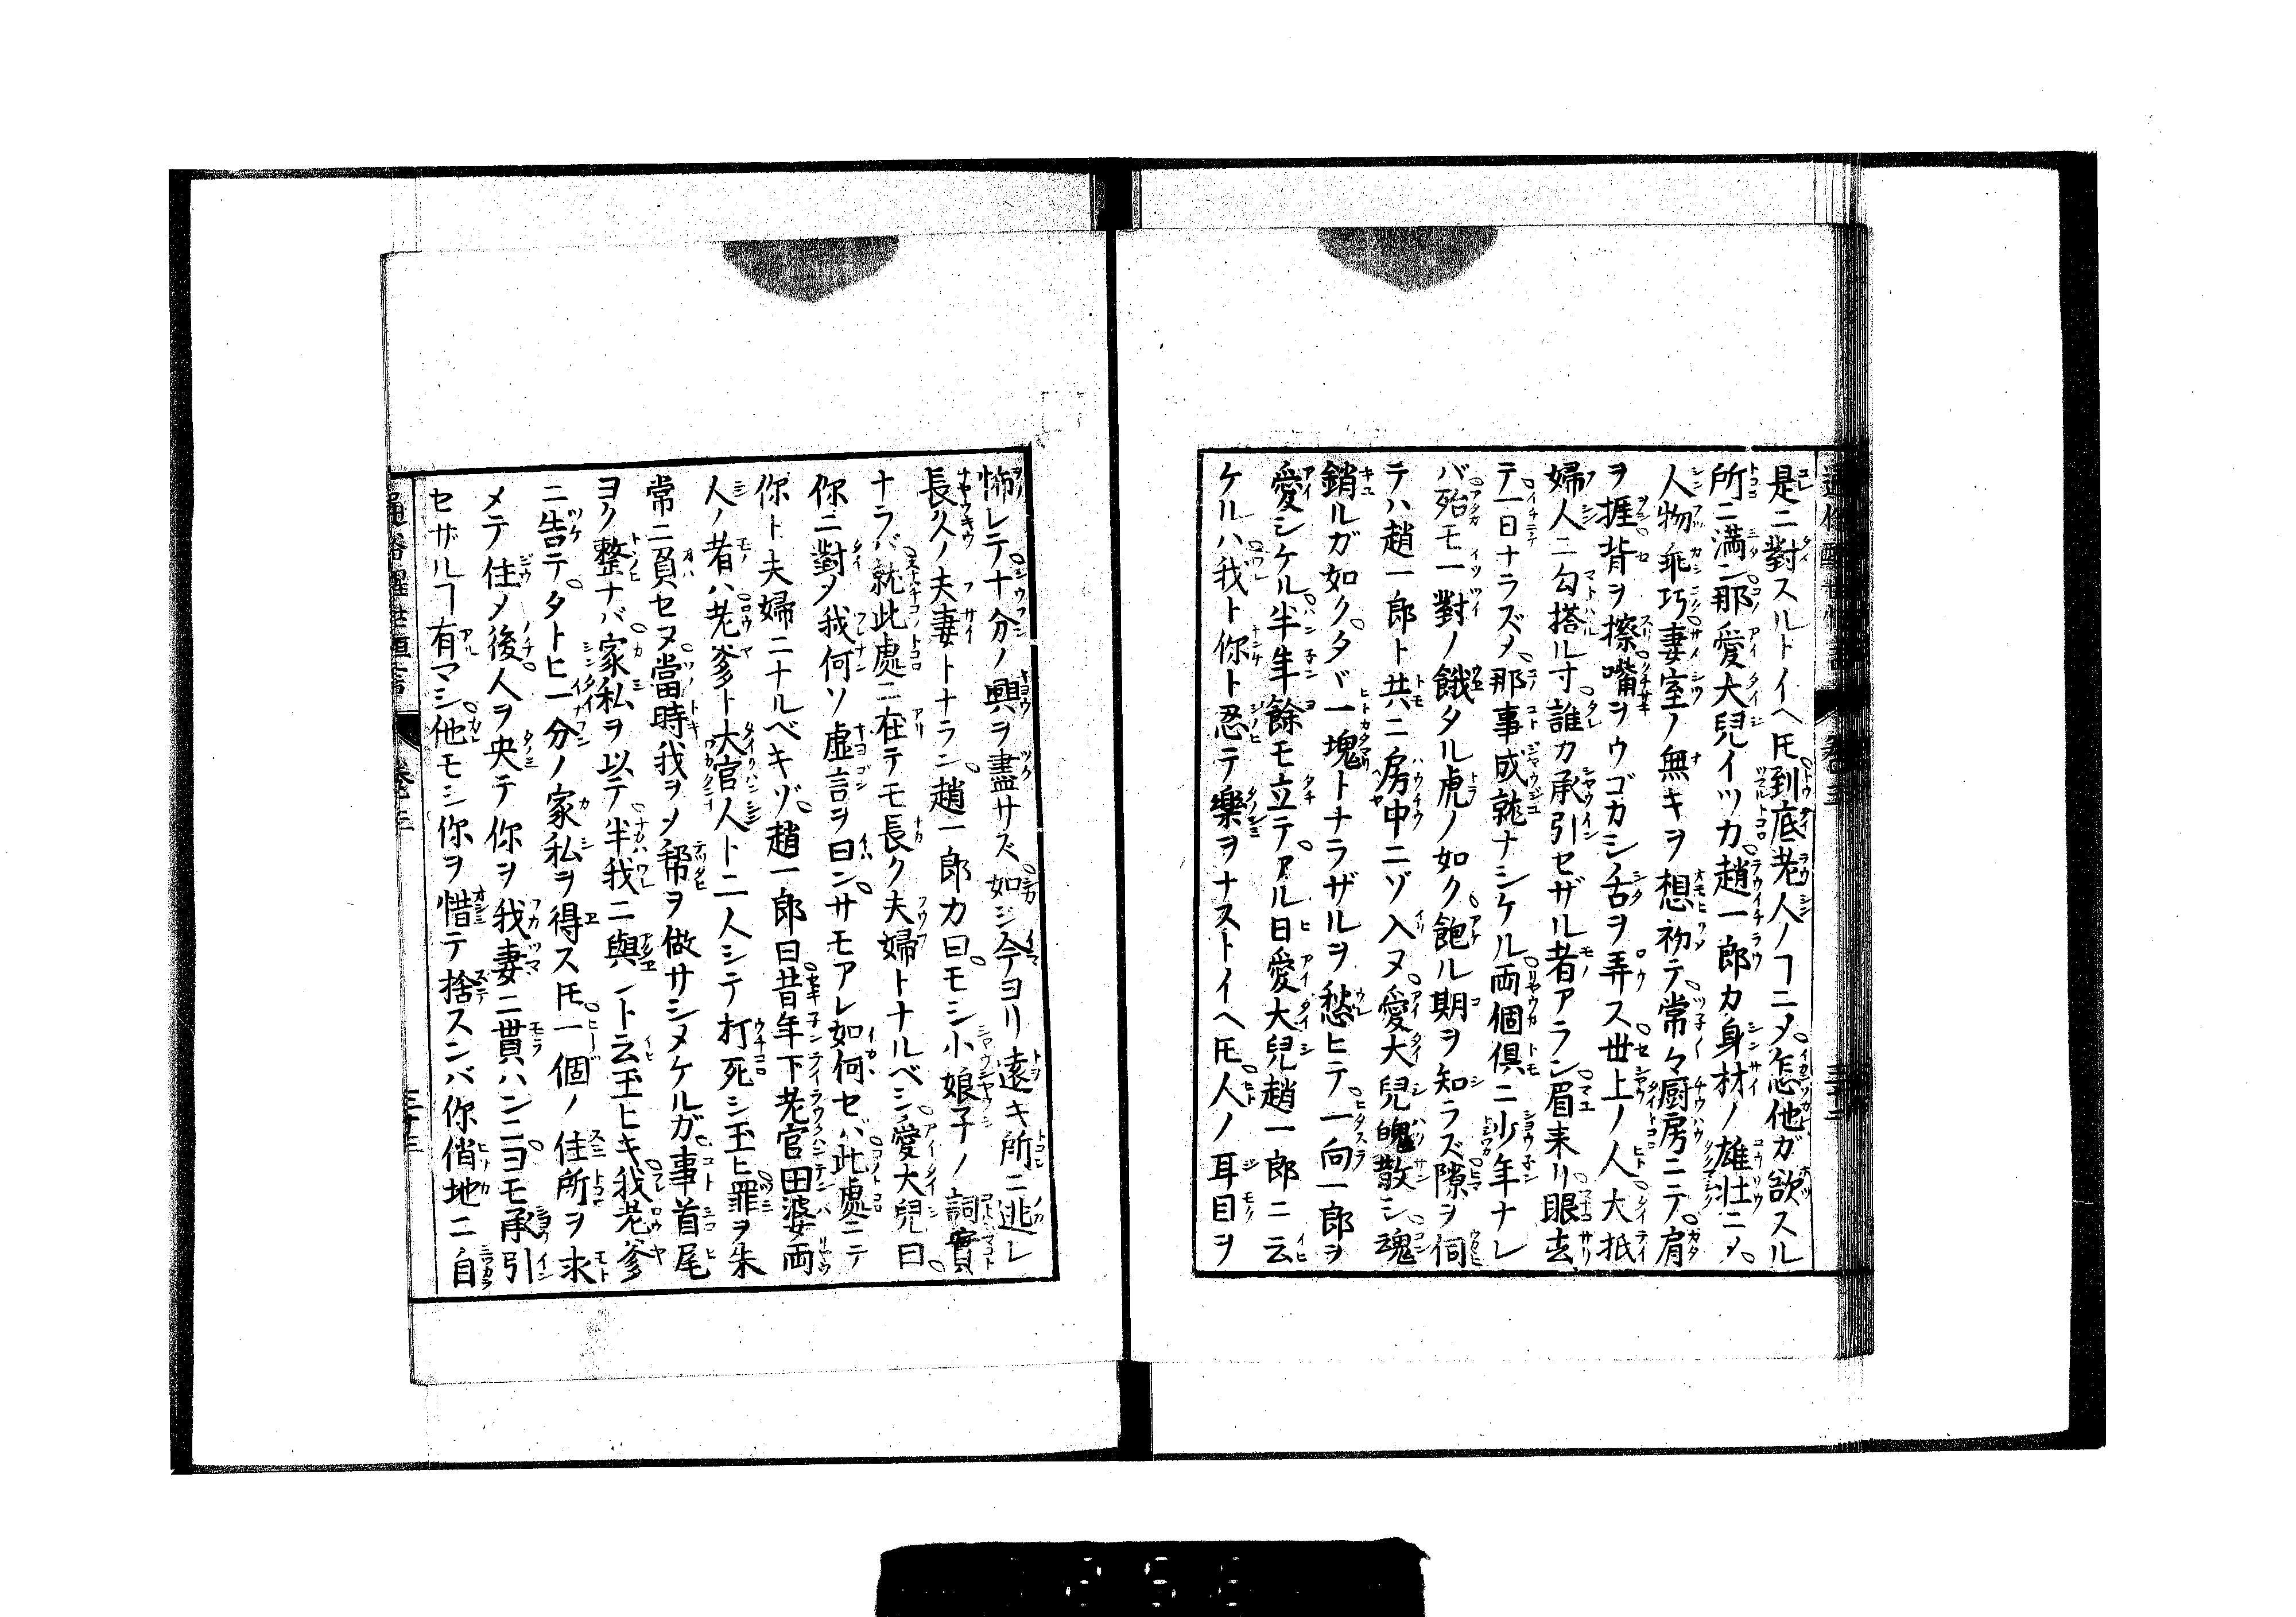 是ニ對スルトイヘ𪜈到底老人ノヿニメ怎他ガ欲スル
所ニ満ン那愛大兒イツカ趙一郎カ身材ノ雄壮ニメ
人物乖巧妻室ノ無キヲ想初テ常々厨房ニテ肩
ヲ捱背ヲ擦嘴ヲウゴカシ舌ヲ弄ス世上ノ人大抵
婦人ニ勾搭ル寸誰カ承引セザル者アラン眉来リ眼去
テ一日ナラズメ那事成就ナシケル両個倶ニ少年ナレ
バ殆モ一對ノ餓タル虎ノ如ク飽ル期ヲ知ラズ隙ヲ伺
テハ趙一郎ト共ニ房中ニゾ入ヌ愛大兒魄散シ魂
銷ルガ如クタヾ一塊トナラザルヲ愁ヒテ一向一郎ヲ
愛シケル半年餘モ立テアル日愛大兒趙一郎ニ云
ケルハ我ト你ト忍テ樂ヲナストイヘ𪜈人ノ耳目ヲ
怖レテ十分ノ興ヲ盡サズ如ジ今ヨリ遠キ所ニ逃レ
長久ノ夫妻トナラン趙一郎カ曰モシ小娘子ノ詞實
ナラバ就此處ニ在テモ長ク夫婦トナルベシ愛大兒曰
你ニ對メ我何ソ虚言ヲ曰ンサモアレ如何セバ此處ニテ
你ト夫婦ニナルベキゾ趙一郎曰昔年下老官田婆両
人ノ者ハ老爹ト大官人ト二人シテ打死シ玉ヒ罪ヲ朱
常ニ負セヌ當時我ヲメ幇ヲ做サシメケルガ事首尾
ヨク整ナバ家私ヲ以テ半我ニ與ントム玉ヒキ我老爹
ニ告テタトヒ一分ノ家私ヲ得ス𪜈一個ノ住所ヲ求
メテ住メ後人ヲ央テ你ヲ我妻ニ貰ハンニヨモ承引
セザルヿ有マシ他モシ你ヲ惜テ捨スンバ你俏地ニ自
通俗醒世恒言 卷三 三十三